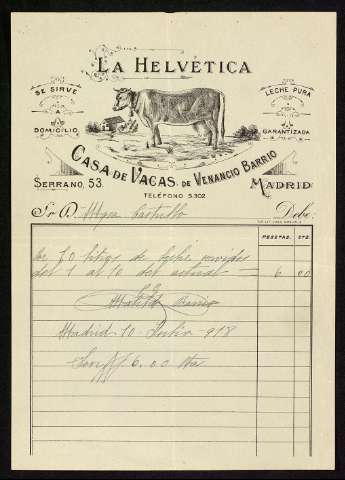 LA HELVÉTICA
SE SIRVE
A
DOMICILIO
LECHE PURA
Y
GARANTIZADA
CASA DE VACAS, DE VENANCIO BARRIO
SERRANO, 53.
MADRID
TELÉFONO S.302
Sr. D. Castillo Debe:
PESETAS. CTS.
litros de leche servidos
del 1 al 10 del actual = 6 00
Barrio
Madrid 10 Julio 918
Son 6.00